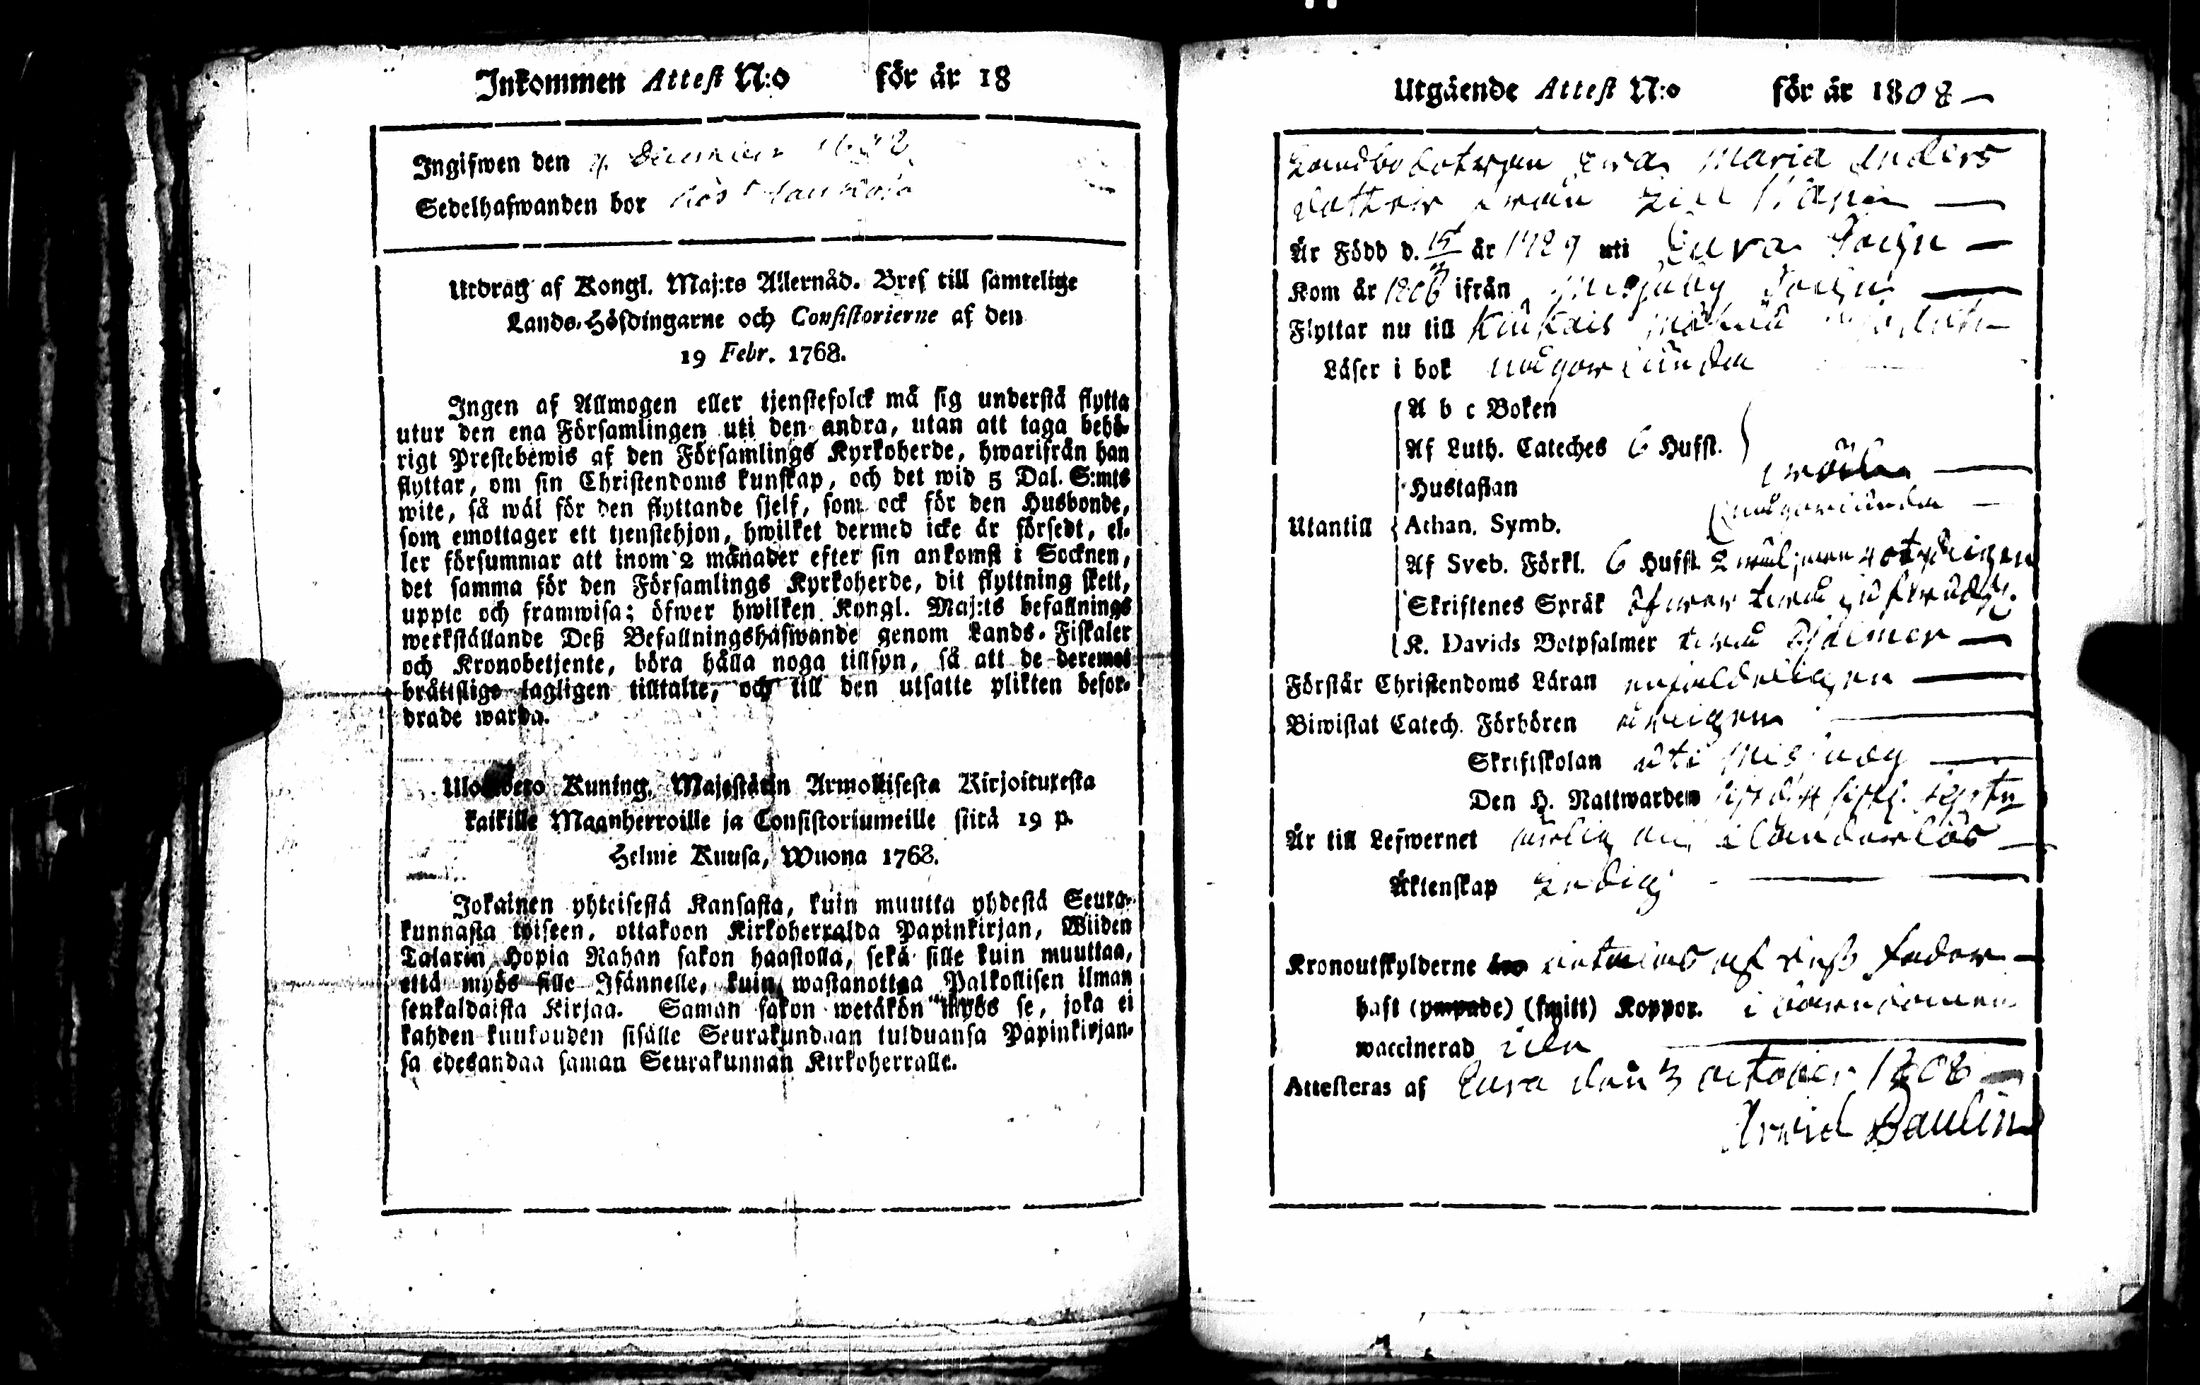 Inkommen Attest N:o för år 18
Ingifwen den 9 December
Sedelhafwanden bor
Utdrag af Kongl. Maj:ts Allernåd. Bref till samtelige
Lands-Höfdingarne och Consistorierne af den
19 Febr. 1768.
Ingen af Allmogen eller tjenstefolck må sig understå flytta
utur den ena Församlingen uti den andra, utan att taga behö-
rigt Prestebewis af den Församlings Kyrkoherde, hwarifrån han
flyttar, om sin Christendoms kunskap, och det wid 5 Dal. S:mts
wite, så wäl för den flyttande sjelf, som ock för den Husbonde,
som emottager ett tjenstehjon, hwilket dermed icke är försedt, el-
ler försummar att inom 2 månader efter sin ankomst i Socknen,
det samma för den Församlings Kyrkoherde, dit flyttning skett,
uppte och framwisa; öfwer hwilken Kongl. Maj:ts befallnings
werkställande Deß Befallningshafwande genom Lands-Fiskaler
och Kronobetjente, böra hålla noga tillsyn, så att de deremot
bråtislige lagligen tilltalte, och till den utsatte plikten befor-
drade warda.
Ulosweto Kuning. Majestätin Armollisesta Kirjoituxesta
kaikille Maanherroille ja Consistoriumeille siitä 19 p.
Helme Kuusa, Wuona 1768.
Jokainen yhteisestä Kansasta, kuin muutta yhdestä Seura-
kunnasta toiseen, ottakoon Kirkoherralda Papinkirjan, Wiiden
Talarin Hopia Rahan sakon haastolla, sekä sille kuin muuttaa,
että myös sille Isännelle, kuin wastanottaa Palkollisen ilman
senkaldaista Kirjaa. Saman sakon wetäkön myös se, joka ei
kahden kuukauden sisälle Seurakundaan tulduansa Papinkirjan-
sa edesandaa saman Seurakunnan Kirkoherralle.
Utgående Attest N:o för år 1808
Maria Anders
dotter från
Är Född d. 15 år 1789 uti Eura Sochn
Kom år 1806 ifrån Sochn
Flyttar nu till Kiukais
Läser i bok någorlunda
A b c Boken
Af Luth. Cateches 6 Hufst.
Hustaflan
Utantill Athan. Symb. någorlunda
Af Sveb. Förkl. 6 Hufst.
Skriftenes Språk
K. Davids Botpsalmer Psalmer
Förstår Christendoms Läran enfaldeligen
Biwistat Catech. Förhören
Skriftskolan uti
Den H. Nattwarden
Är till Lefwernet ärlig
Äktenskap Ledig
Kronoutskylderne af deß fader
haft (ympade) (smitt) Koppor. i barndomen
waccinerad icke
Attesteras af Eura den 3 october 1808
Arwid Paulin